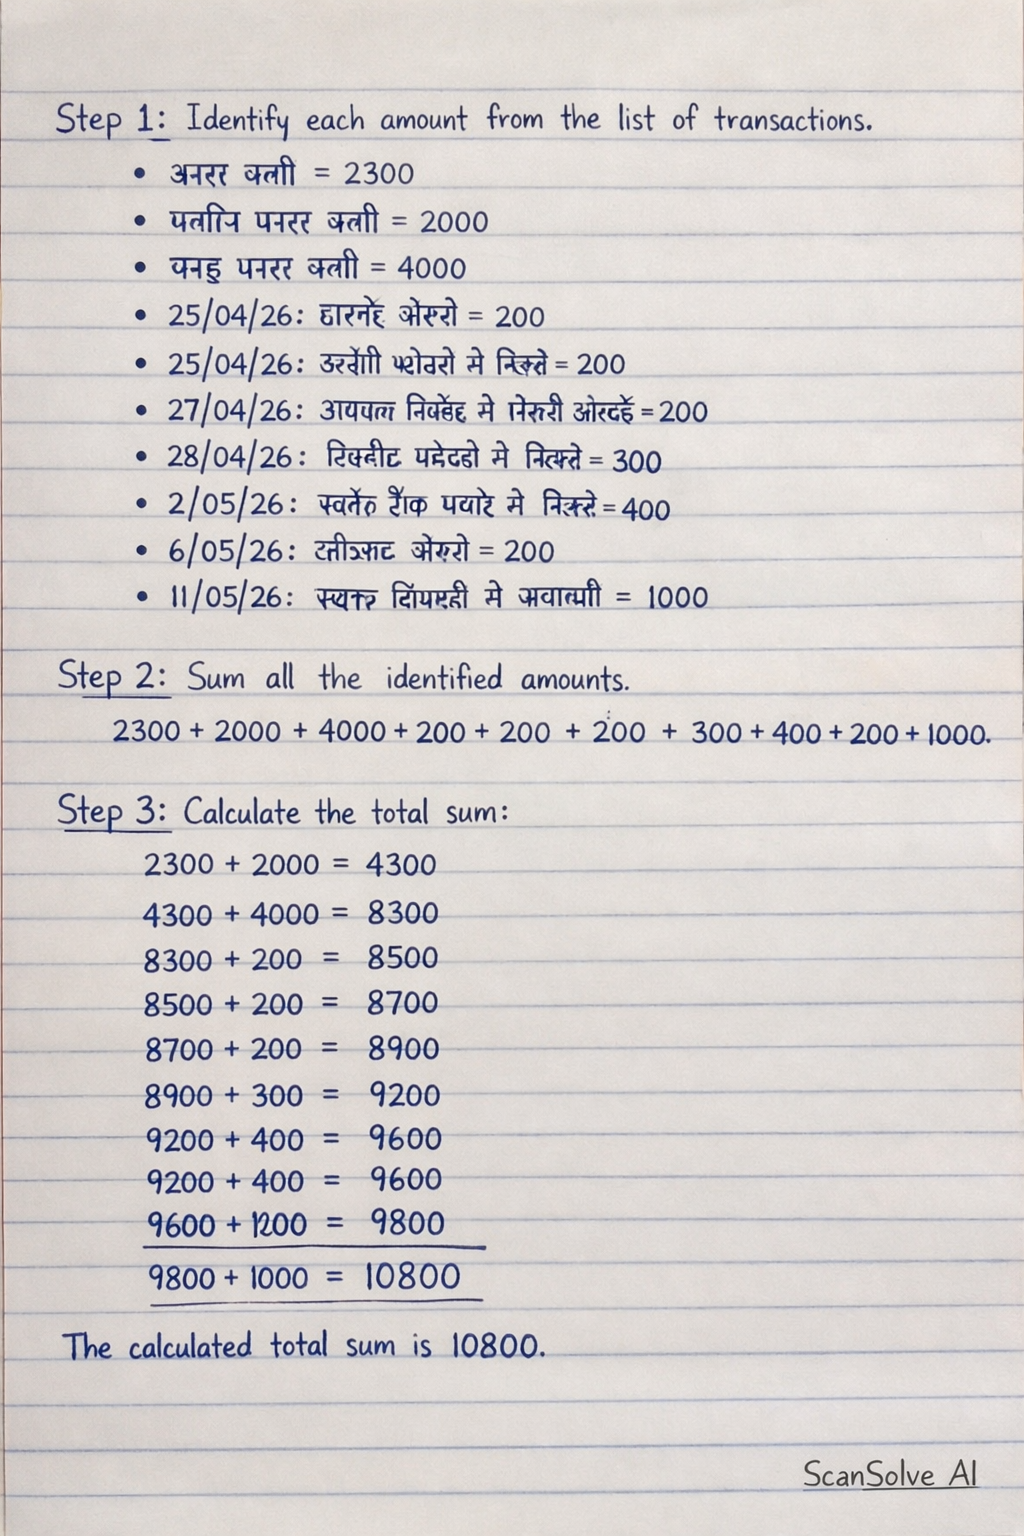 Step 1: Identify each amount from the list of transactions.
• अनरर क्ली = 2300
• पनरर क्ली = 2000
• पनरर क्ली = 4000
• 25/04/26: = 200
• 25/04/26: मे = 200
• 27/04/26: मे = 200
• 28/04/26: मे = 300
• 2/05/26: मे = 400
• 6/05/26: = 200
• 11/05/26: मे = 1000
Step 2: Sum all the identified amounts.
2300 + 2000 + 4000 + 200 + 200 + 200 + 300 + 400 + 200 + 1000.
Step 3: Calculate the total sum:
2300 + 2000 = 4300
4300 + 4000 = 8300
8300 + 200 = 8500
8500 + 200 = 8700
8700 + 200 = 8900
8900 + 300 = 9200
9200 + 400 = 9600
9200 + 400 = 9600
9600 + 1200 = 9800
9800 + 1000 = 10800
The calculated total sum is 10800.
ScanSolve AI